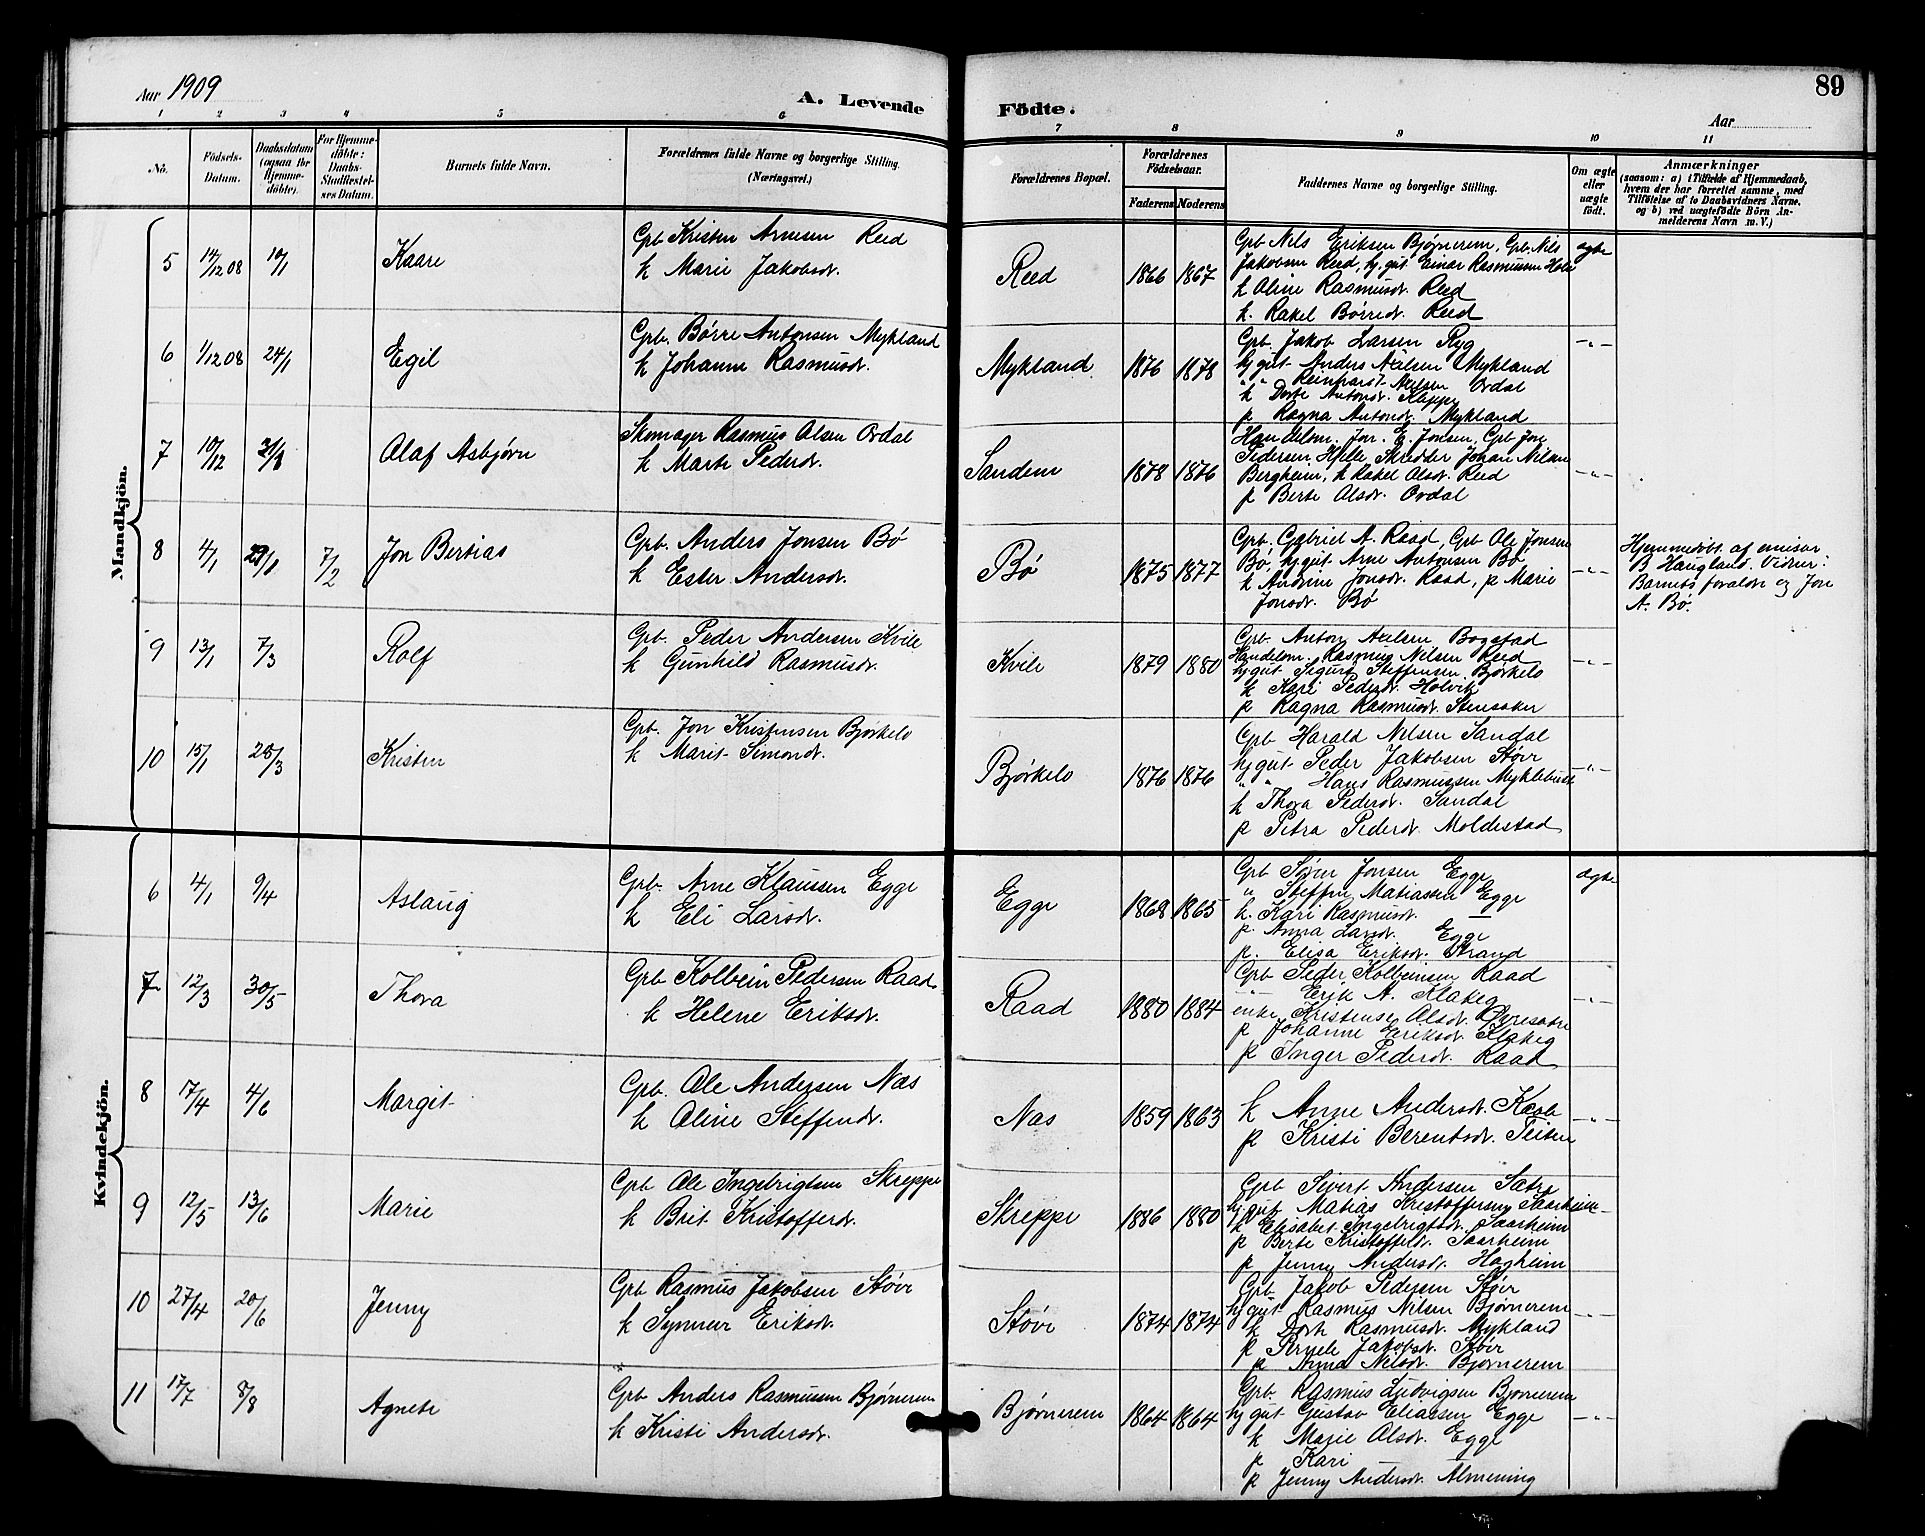 Aar 1909
A. Levende
Födte.
Aar
89
1 2 3 4 5 6 7 8 9 10 11
No.
Födsels-
Datum.
Daabsdatum
(ogsaa for
Hjemme-
döbte).
For Hjemme-
döbte:
Daabs-
Stadfæstel-
ses Datum.
Barnets fulde Navn.
Forældrenes fulde Navne og borgerlige Stilling.
(Næringsvei.)
Forældrenes Bopæl.
Forældrenes
Födselsaar.
Faderens Moderens
Faddernes Navne og borgerlige Stilling.
Om ægte
eller
uægte
födt.
Anmærkninger
(saasom: a) i Tilfælde af Hjemmedaab,
hvem der har forrettet samme, med
Tilföielse af to Daabsvidners Navne.
og b) ved uægtefödte Börn An-
melderens Navn m. V.)
Mandkjön.
5 14/12 08 10/1 Kaare
Grb Kristen Arnesen Reed
k Marie Jakobsdt.
Reed 1866 1867
Grb Nils Eriksen Bjørnerem, Grb Nils
Jakobsen Reed, hj.gut Einar Rasmussen
k Oline Rasmusdt. Reed
k. Rakel Børredt. Reed
ægte
6 1/12 08 24/1 Egil
Grb. Børre Antonsen Mykland
k Johanne Rasmusdt.
Mykland 1876 1878
Grb. Jakob Larsen Ryg
hj.gut Anders Axelsen Mykland
" " Reinhart Nilsen Ordal
k Dorte Antondt.
p Ragna Antondt. Mykland
-"-
7 10/12 Olaf Asbjørn
Skomager Rasmus Olsen Ordal
k Marte Pederdt.
Sandene 1878 1876
Handelsm. Jon. E. Jonsen, Grb Jon
Pedersen Hjelle Skrædder Johan Nilsen
Bergheim, k Rakel Olsdt. Reed
p Berte Olsdt. Ordal
-"-
8 4/1 7/2 Jon Bertias
Grb. Anders Jonsen Bø
k Ester Andersdt.
Bø 1875 1877
Grb. Gabriel A. Raad, Grb Ole Jonsen
Bø, hj.gut Arne Antonsen Bø
k Andrine Jonsdt. Raad, p Marie
Jonsdt. Bø
-"-
Hjemmedøbt af emisær
B Haugland. Vidner:
Barnets forældre og Jon
A. Bø.
9 13/1 7/3 Rolf
Grb. Peder Andersen Kvile
k Gunhild Rasmusdt.
Kvile 1879 1880
Grb. Anton Axelsen Bogstad
Handelsm. Rasmus Nilsen Reed
hj.gut Sigurd Steffensen Bjørkelo
k Kari Pedersdt. Holvik
p Ragna Rasmusdt. Stensaker
-"-
10 15/1 28/3 Kristen
Grb. Jon Kristensen Bjørkelo
k Marit Simondt.
Bjørkelo 1876 1876
Grb Harald Nilsen Sandal
hj.gut Peder Jakobsen Støve
" " Hans Rasmussen Myklebust
k Thora Pedersdt. Sandal
p Petra Pedersdt. Moldestad
-"-
Kvindekjön.
6 4/1 9/4 Aslaug
Grb. Arne Klaussen Egge
k Eli Larsdt.
Egge 1868 1865
Grb Søren Jonsen Egge
" Steffen Matiassen Egge
k. Kari Rasmusdt. —
p. Anna Larsdt. Egge
p. Elisa Eriksdt. Strand
ægte
7 12/3 30/5 Thora
Grb Kolbein Pedersen Raad
k Helene Eriksdt.
Raad 1880 1884
Grb Peder Kolbeinsen Raad
-"- Erik A. Klakeg
enke Kristense Olsdt. Øvresætre
p Johanne Eriksdt Klakeg
p Inger Pedersdt. Raad
-"-
8 17/4 4/6 Margit
Grb. Ole Andersen Nas
k Oline Steffendt.
Nas 1859 1863
k Anne Andersdt.
p Kristi Berentsdt.
-"-
9 12/5 13/6 Marie
Grb Ole Ingebrigtsen Skreppe
k Brit Kristofferdt.
Skreppe 1886 1880
Grb Sivert Andersen Sætre
hj.gut Matias Kristoffersen Saarheim
k Elisabet Ingebrigtsdt. Saarheim
p Berte Kristofferdt. Saarheim
p Jenny Andersdt. Hagheim
-"-
10 27/4 20/6 Jenny
Grb Rasmus Jakobsen Støve
k Synneve Eriksdt.
Støve 1874 1874
Grb. Jakob Pedersen Støve
hj.gut Rasmus Nilsen Bjørnerem
k Dorte Rasmusdt. Mykland
p Jakobdt. Støve
p Anna Nilsdt. Bjørnerem
-"-
11 17/7 8/8 Agnete
Grb Anders Rasmussen Bjørnerem
k Kristi Andersdt.
Bjørnerem 1864 1864
Grb. Rasmus Ludvigsen Bjørnerem
hj gut Gustav Eliassen Egge
k Marie Olsdt. Egge
p Kari —
p Jenny Andersdt. Almening
-"-